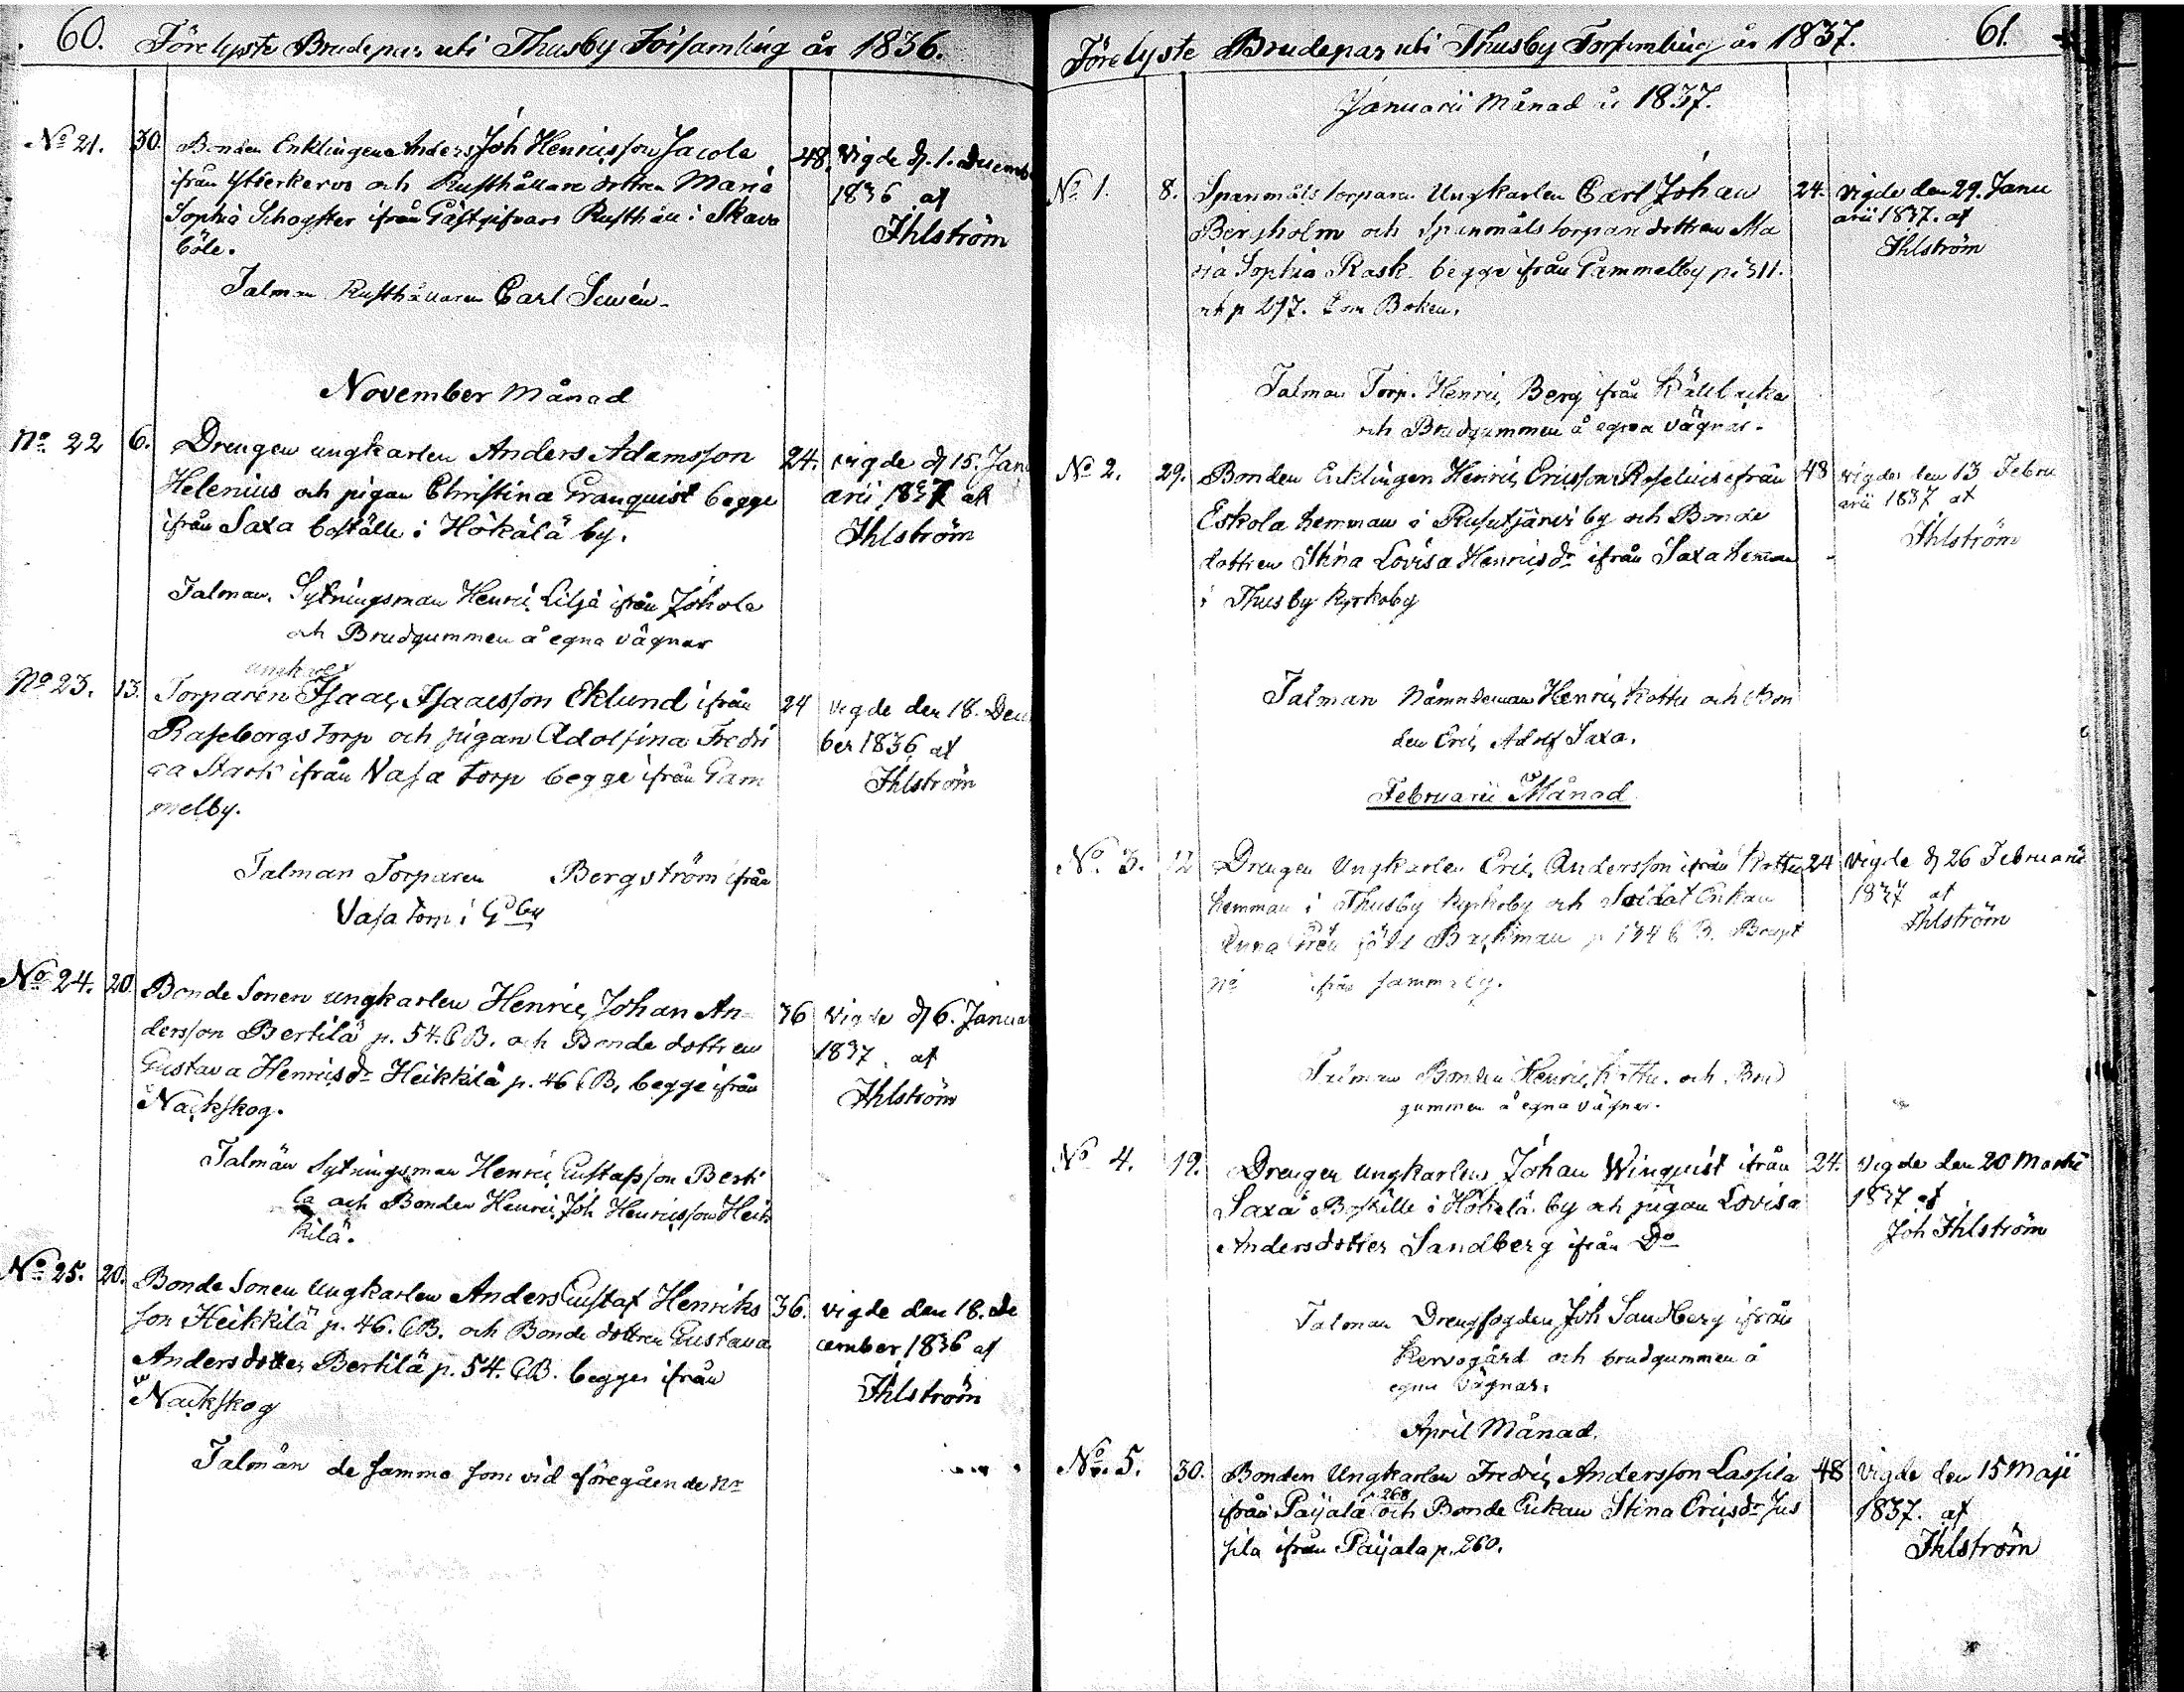 60. Förelyste Brudepar uti Thusby Församling år 1836.
No 21. 30. Bonden Enklingen Anders Joh Henricsson Jacola 48. Vigde d. 1. Decemb
ifrån Ytterkervo och Rusthållare dottren Maria 1836 af
Sophia Schogster ifrån Gästgifvars Rusthåll i Skava Ihlström
böle.
Talman Rusthållaren Carl Sevén
November Månad
No 22 6. Drengen ungkarlen Anders Adamsson 24. vigde d 15. Janu
Helenius och pigan Christina Granquist begge arii 1837 af
ifrån Saxa boställe i Hökälä by. Ihlström
Talman. Sytningsman Henric Lilja ifrån Johola
och Brudgummen å egna vägnar
ungkarl
No 23. 13. Torparen Isaac Isaacsson Eklund ifrån 24 vigde den 18. Decem
Raseborgs torp och pigan Adolfina Fredri ber 1836 af
ca Stark ifrån Vasa torp begge ifrån Gam Ihlström
melby.
Talman Torparen Bergström ifrån
Vasa torp i G by
No 24. 20. Bonde Sonen ungkarlen Henric Johan An- 36 vigde d 6. Janua
dersson Bertilä p. 54. CB. och Bonde dottren 1837. af
Gustava Henricsdr Heikkilä p. 46 CB, begge ifrån Ihlström
Nackskog.
Talmän Sytningsman Henric Gustafsson Berti
la och Bonden Henric Joh Henricsson Heik
kilä.
No 25. 20. Bonde Sonen Ungkarlen Anders Gustaf Henriks 36. vigde den 18. De
son Heikkilä p. 46. CB. och Bonde dottren Gustava cember 1836 af
Andersdotter Bertilä p. 54. CB. begge ifrån Ihlström
Nackskog
Talmän de samma som vid föregående Nr
Förelyste Brudepar uti Thusby Församling år 1837. 61.
Januarii Månad år 1837.
No 1. 8. Spanmåls torparen Ungkarlen Carl Johan 24. vigde den 29. Janu
Bergholm och Spanmåls torpare dottren Ma arii 1837. af
ria Sophia Rask begge ifrån Gammelby p. 311. Ihlström
och p 297. Com Boken.
Talman Torp. Henric Berg ifrån Källbacka
och Brudgummen å egna vägnar.
No 2. 29. Bonden Enklingen Henric Ericsson Roselius ifrån 48 vigdes den 13 Febru
Eskola hemman i Rusutjärvi by och Bonde arii 1837 af
dottren Stina Lovisa Henricsdr ifrån Saxa hemman Ihlström
i Thusby Kyrkoby
Talman Nämndeman Henric Kottu och Bon
den Eric Adolf Saxa.
Februarii Månad
No 3. 12 Drengen Ungkarlen Eric Andersson ifrån Kottu 24 vigde d 26 Februarii
hemman i Thusby Kyrkoby och Soldat Enkan 1837 af
Anna född Backman p 134 CB. Ihlström
ifrån samma by.
Talman Bonden Henric Kottu. och Brud
gummen å egna vägnar.
No 4. 19. Drengen ungkarlen Johan Winquist ifrån 24. vigde den 20 Martii
Saxa Boställe i Hökelä by och pigan Lovisa 1837 af
Andersdotter Sandberg ifrån Do Joh Ihlström
Talman Drengfogden Joh Sandberg ifrån
Kervogård och brudgummen å
egna vägnar.
April Månad.
No. 5. 30. Bonden Ungkarlen Fredric Andersson Lassila 48 vigde den 15 Maji
p 268
ifrån Paijala och Bonde Enkan Stina Ericsdr Jus 1837. af
sila ifrån Paijala p. 260. Ihlström